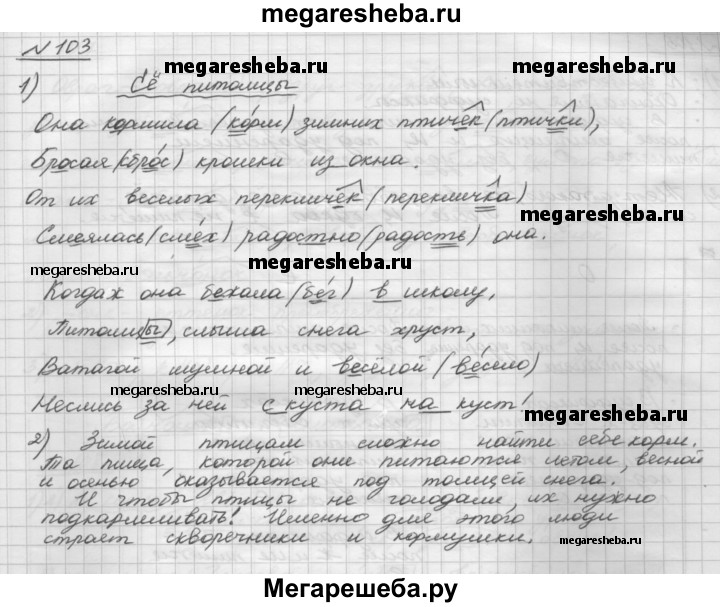 megaresheba.ru
N 103
megaresheba.ru megaresheba.ru
1) Её питомцы
Она кормила (корм) зимних птичек (птички),
Бросая (сброс) крошки из окна.
От их веселых перекличек (перекличка)
megaresheba.ru
Смеялась (смех) радостно (радость) она.
megaresheba.ru
Когдах она бехала (бег) в школу,
Питомцы, слыша снега хруст,
Ватагой шумной и весёлой (весело)
megaresheba.ru megaresheba.ru
Неслись за ней с куста на куст!
megaresheba.ru
2) Зимой птицам сложно найти себе корм.
Та пища, которой они питаются летом, весной
и осенью оказывается под толщей снега.
И чтобы птицы не голодали, их нужно
подкармливать! Именно для этого люди
строят скворечники и кормушки.
megaresheba.ru
Мегарешеба.ру